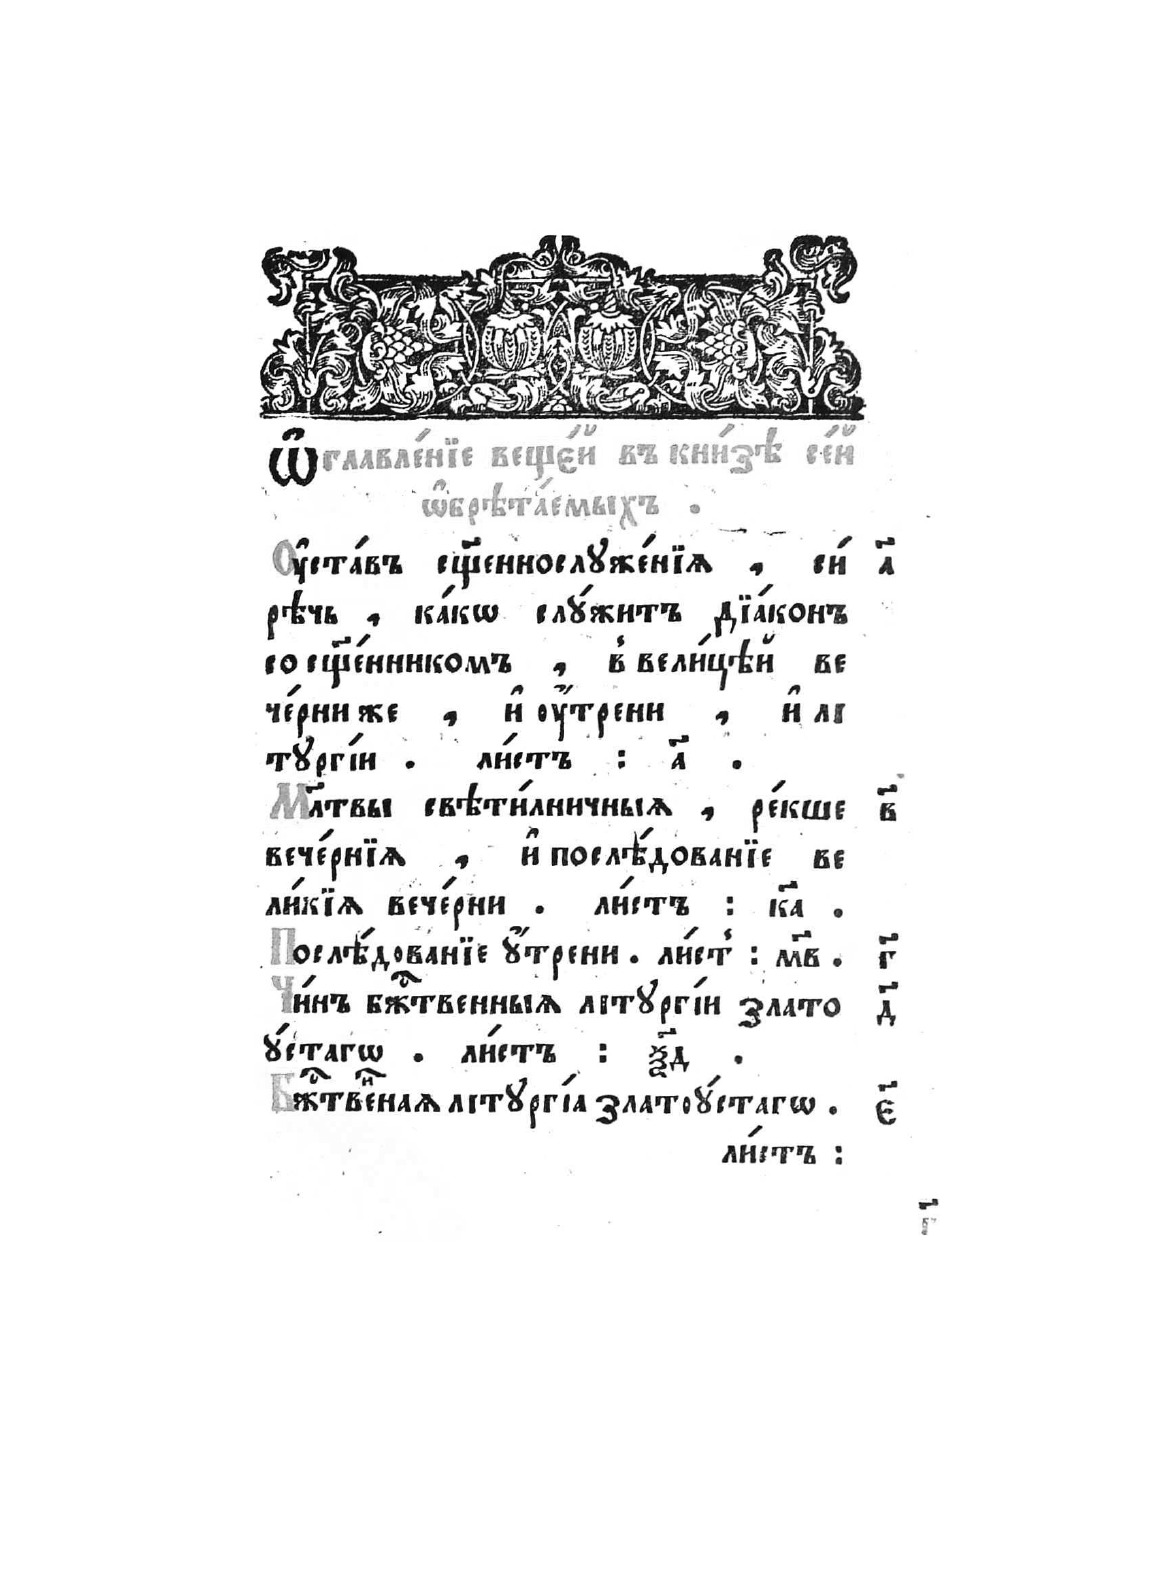 Ѡ҆главле́нїе веще́й въ кни́зѣ се́й
ѡ҆брѣта́емыхъ .
Оу҆ста́въ сщ҃еннослꙋже́нїѧ , си́ а҃
рѣчь , ка́кѡ слꙋ́житъ дїа́конъ
со сщ҃е́нникомъ , в̾ вели́цѣй ве
че́рни же , и҆ ᲂу҆́трени , и҆ лі
тꙋргі́и . ли́стъ : а҃ .
Мл҃твы свѣти́лничныѧ , ре́кше в҃
вече́рнїѧ , и҆ послѣ́дованїе ве
ли́кїѧ вече́рни . ли́стъ : к҃а .
Послѣ́дованїе ᲂу҆́трени . ли́ст̾ : м҃в . г҃
Чи́нъ бж҃ⷭ҇твенныѧ літꙋргі́и злато д҃
ꙋ́стагѡ . ли́стъ : ѯ҃д .
Бжⷭ҇твеⷩ҇наѧ літꙋргі́а златоꙋ́стагѡ . є҃
ли́стъ :
г҃